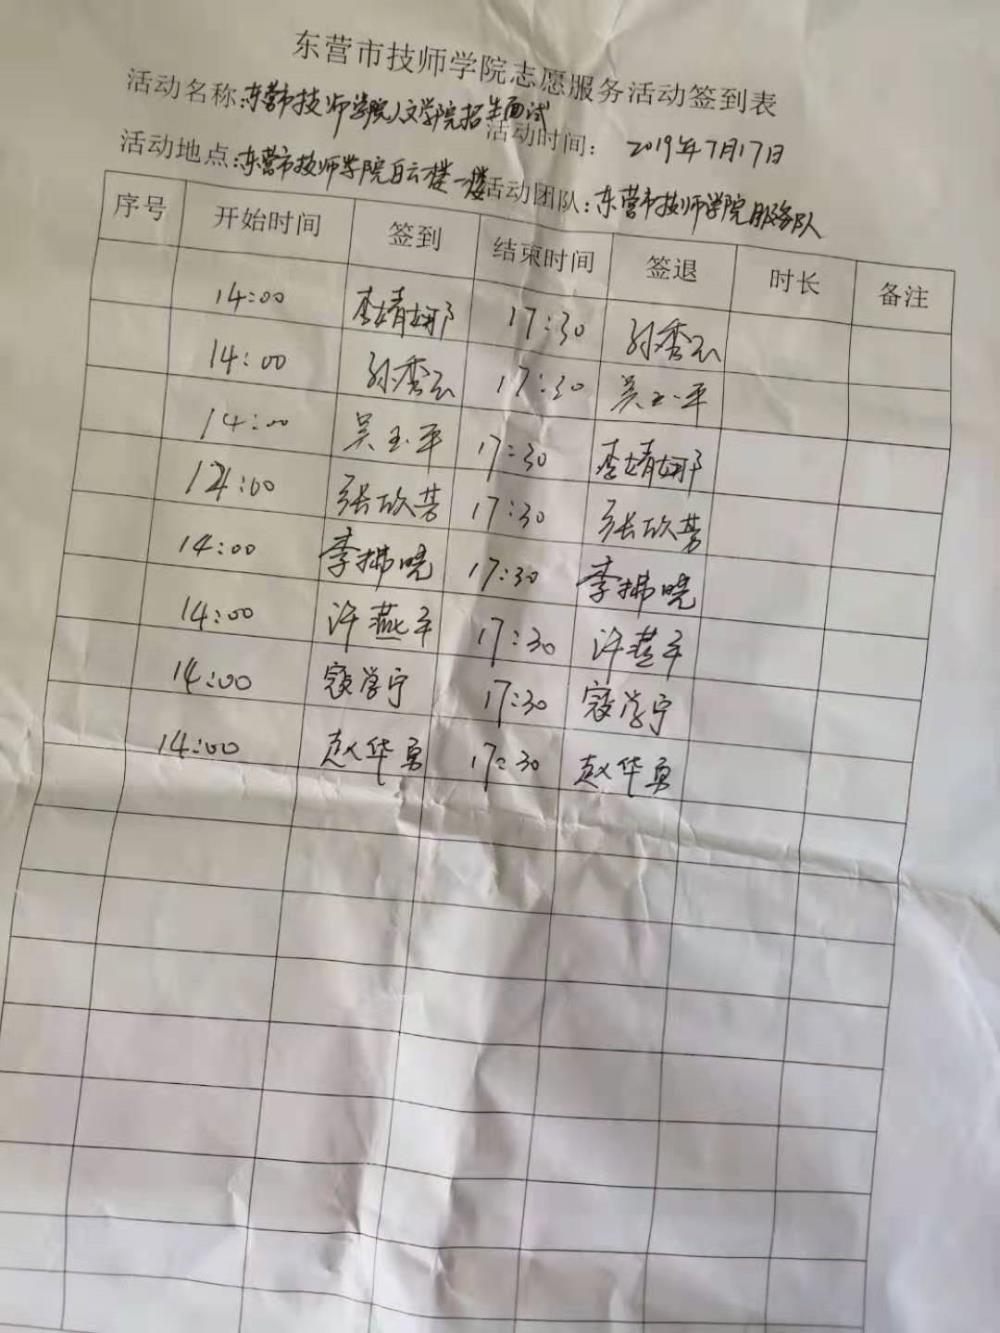 东营市技师学院志愿服务活动签到表
活动名称:东营市技师学院人文学院招生面试
活动时间: 2019年7月17日
活动地点:东营市技师学院白云楼一楼 活动团队:东营市技师学院服务队
序号 开始时间 签到 结束时间 签退 时长 备注
14:00 李婧娜 17:30 孙秀云
14:00 孙秀云 17:30 吴玉平
14:00 吴玉平 17:30 李婧娜
14:00 张欣芳 17:30 张欣芳
14:00 李拂晓 17:30 李拂晓
14:00 许燕平 17:30 许燕平
14:00 寇学宁 17:30 寇学宁
14:00 赵华勇 17:30 赵华勇